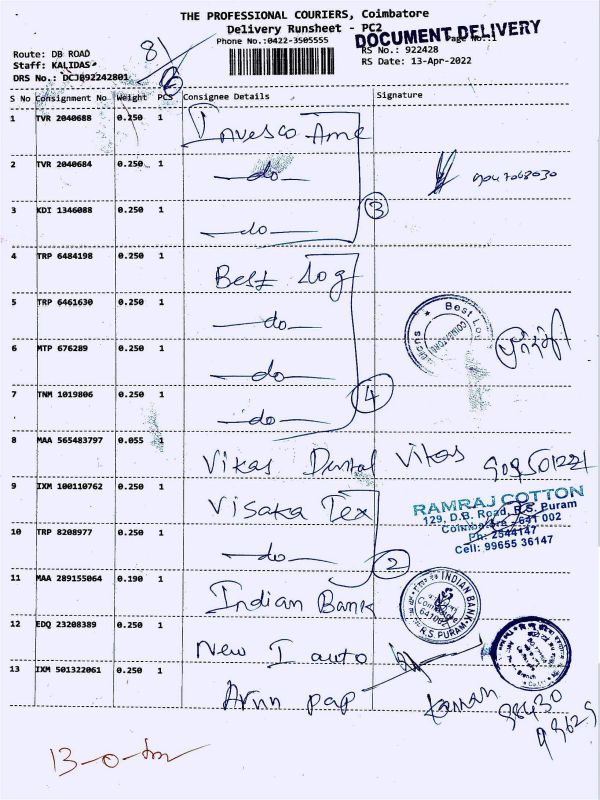 THE PROFESSIONAL COURIERS, Coimbatore
Delivery Runsheet - PC2
DOCUMENT DELIVERY
Phone No.:0422-3505555
Page No.:1
Route: DB ROAD
RS No.: 922428
Staff: KALIDAS
RS Date: 13-Apr-2022
DRS No.: DCJ092242801
8
S No Consignment No Weight PCS Consignee Details Signature
1 TVR 2040688 0.250 1 Invesco Ame
2 TVR 2040684 0.250 1 -do-
3 KDI 1346088 0.250 1 -do-
3
4 TRP 6484198 0.250 1 Best Log
5 TRP 6461630 0.250 1 -do-
Best Log
COIMBATORE
6 MTP 676289 0.250 1 -do-
7 TNM 1019806 0.250 1 -do-
4
8 MAA 565483797 0.055 1 Vikas Dental Vikas
9 IXM 100110762 0.250 1 Visaka Tex
RAMRAJ COTTON
129, D.B. Road, R.S. Puram
Coimbatore - 641 002
Ph: 2544147
Cell: 99655 36147
10 TRP 8208977 0.250 1 -do-
2
11 MAA 289155064 0.190 1 Indian Bank
INDIAN BANK
R.S. PURAM
12 EDQ 23208389 0.250 1 New I auto
13 IXM 501322061 0.250 1 Arun pap
98430